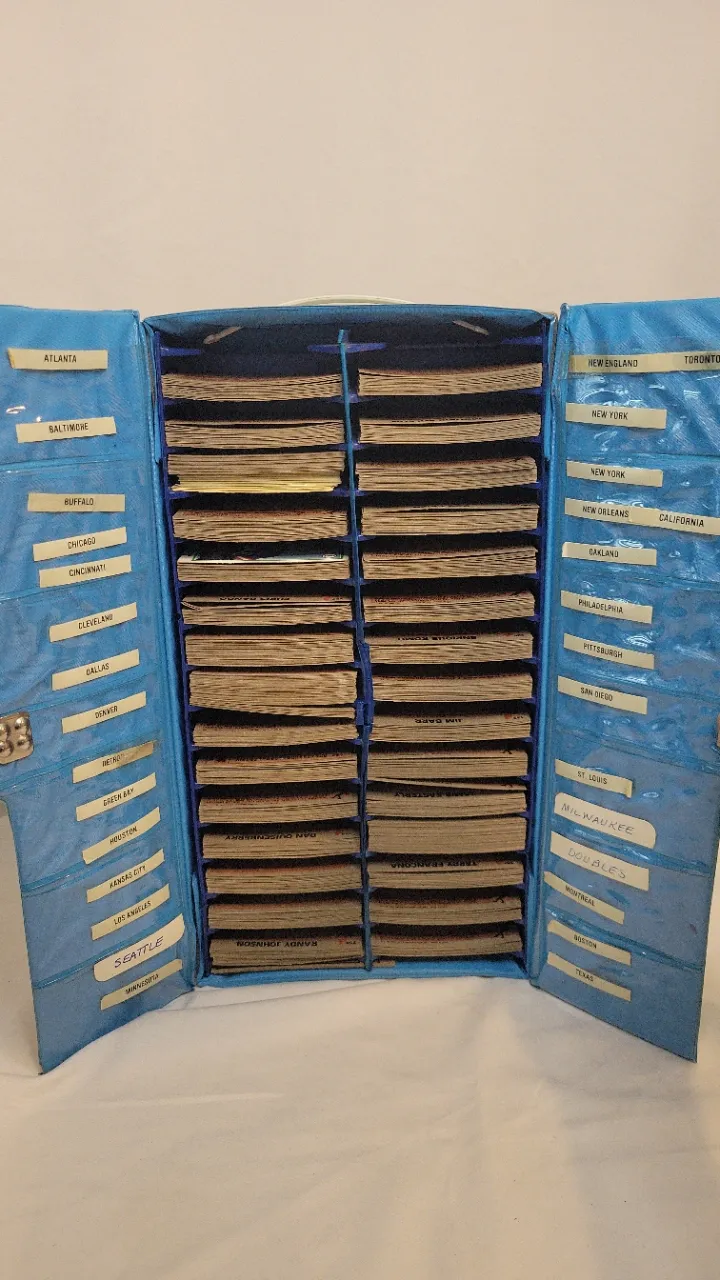 ATLANTA
BALTIMORE
BUFFALO
CHICAGO
CINCINNATI
CLEVELAND
DALLAS
DENVER
DETROIT
GREEN BAY
HOUSTON
KANSAS CITY
LOS ANGELES
SEATTLE
MINNESOTA
DAN QUISENBERRY
RANDY JOHNSON
JIM BARR
TERRY FRANCONA
NEW ENGLAND TORONTO
NEW YORK
NEW YORK
NEW ORLEANS CALIFORNIA
OAKLAND
PHILADELPHIA
PITTSBURGH
SAN DIEGO
ST. LOUIS
MILWAUKEE
DOUBLES
MONTREAL
BOSTON
TEXAS